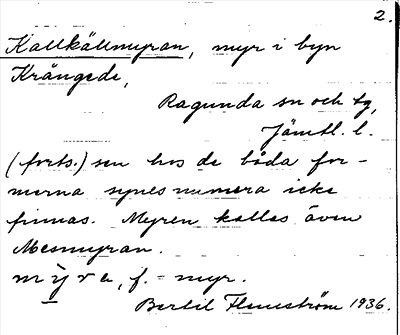 2.
Kallkällmyran, myr i byn
Krångede,
Ragunda sn och tg,
Jämtl. l.
(forts.) sen hos de båda for-
merna synes numera icke
finnas. Myren kallas även
Mesmyran.
mỳra, f. = myr.
Bertil Flemström 1936.